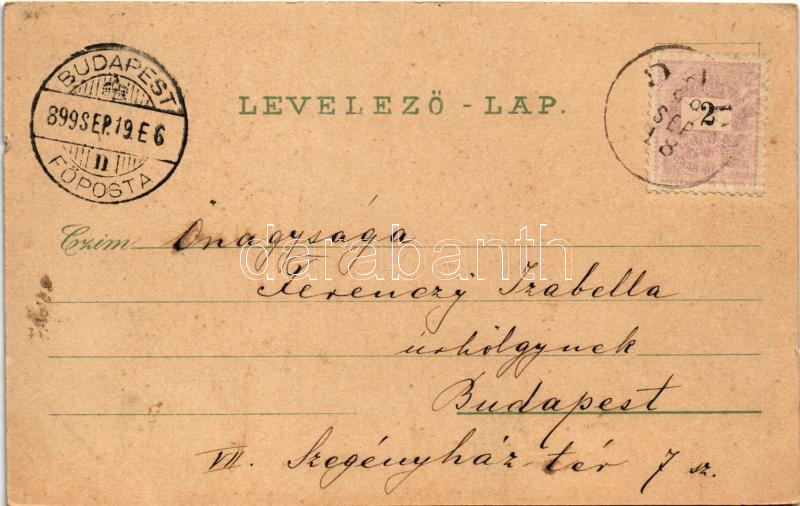 BUDAPEST
899 SEP. 19. E 6
n
FŐPOSTA
LEVELEZŐ - LAP.
SEP
18
2
Czim Önagysága
Ferenczy Izabella
úrhölgynek
Budapest
VII. Szegényház-tér 7 sz.
darabanth